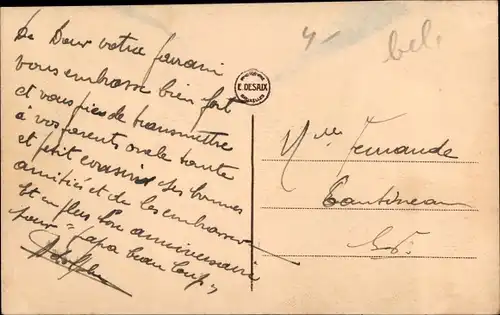 votre parrain
vous embrasse bien fort
et vous prie de transmettre
à vos parents oncle tante
et petit cousin ses bonnes
amitiés et de les embrasser
et en plus bon anniversaire
pour papa beaucoup
Adolphe
4-
bel.
E. DESAIX
BRUXELLES
Mlle Fernande
E.V.